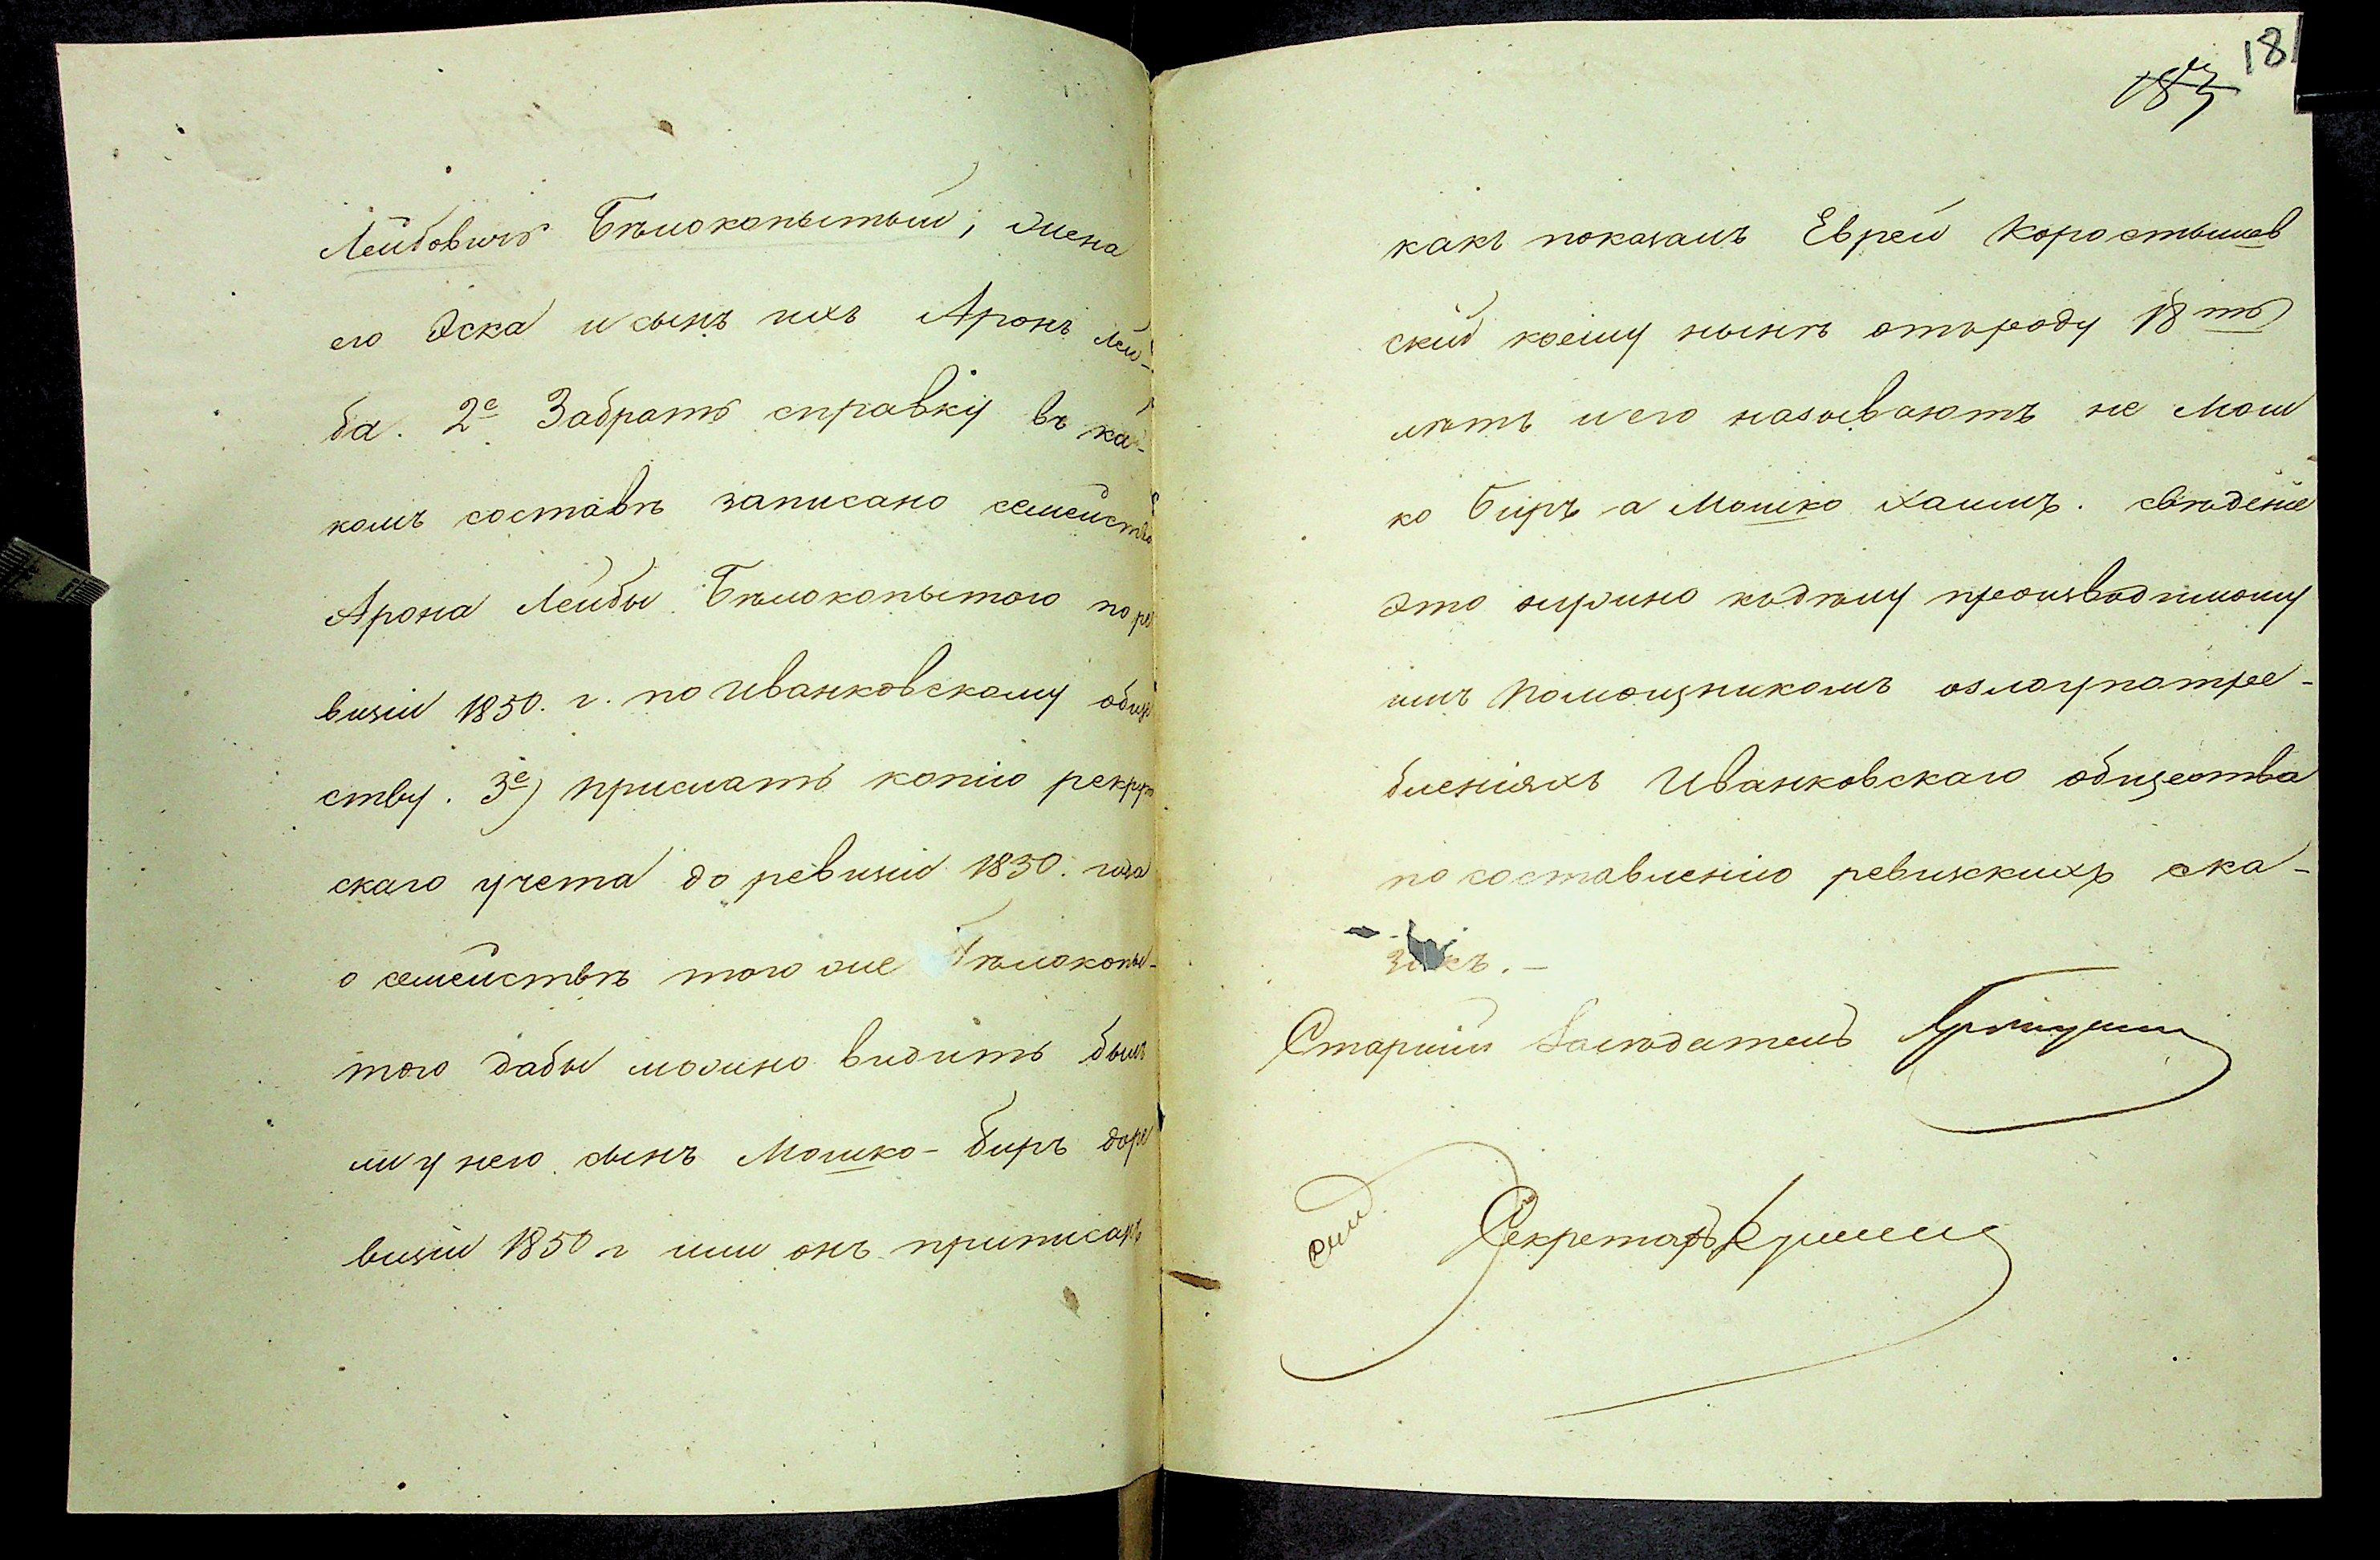 Лейбовичъ Бѣлокопытый; жена
его Эска и сынъ ихъ Аронъ Лей-
ба. 2е Забрать справку въ ка-
комъ составѣ записано семейство
Арона Лейбы Бѣлокопытого по ре
визіи 1850. г. по Иванковскому обще
ству. 3е) прислать копію рекрут
скаго учета до ревизіи 1850. года
о семействѣ того же Бѣлокопы-
того дабы можно видить былъ
ли у него сынъ Мошко-Биръ до ре
визіи 1850 г или онъ приписанъ
181
183
какъ показалъ Еврей Коростышев
скій коему нынѣ отъ роду 18ть
лѣтъ и его называютъ не Мош
ко Биръ а Мошко Хаимъ. свѣденіе
это нужно къ дѣлу производимому
имъ Помощникомъ о злоупотре-
бленіяхъ Иванковскаго общества
по составленію ревизскихъ ска-
зокъ.-
Старшій Засѣдатель
Секретарь